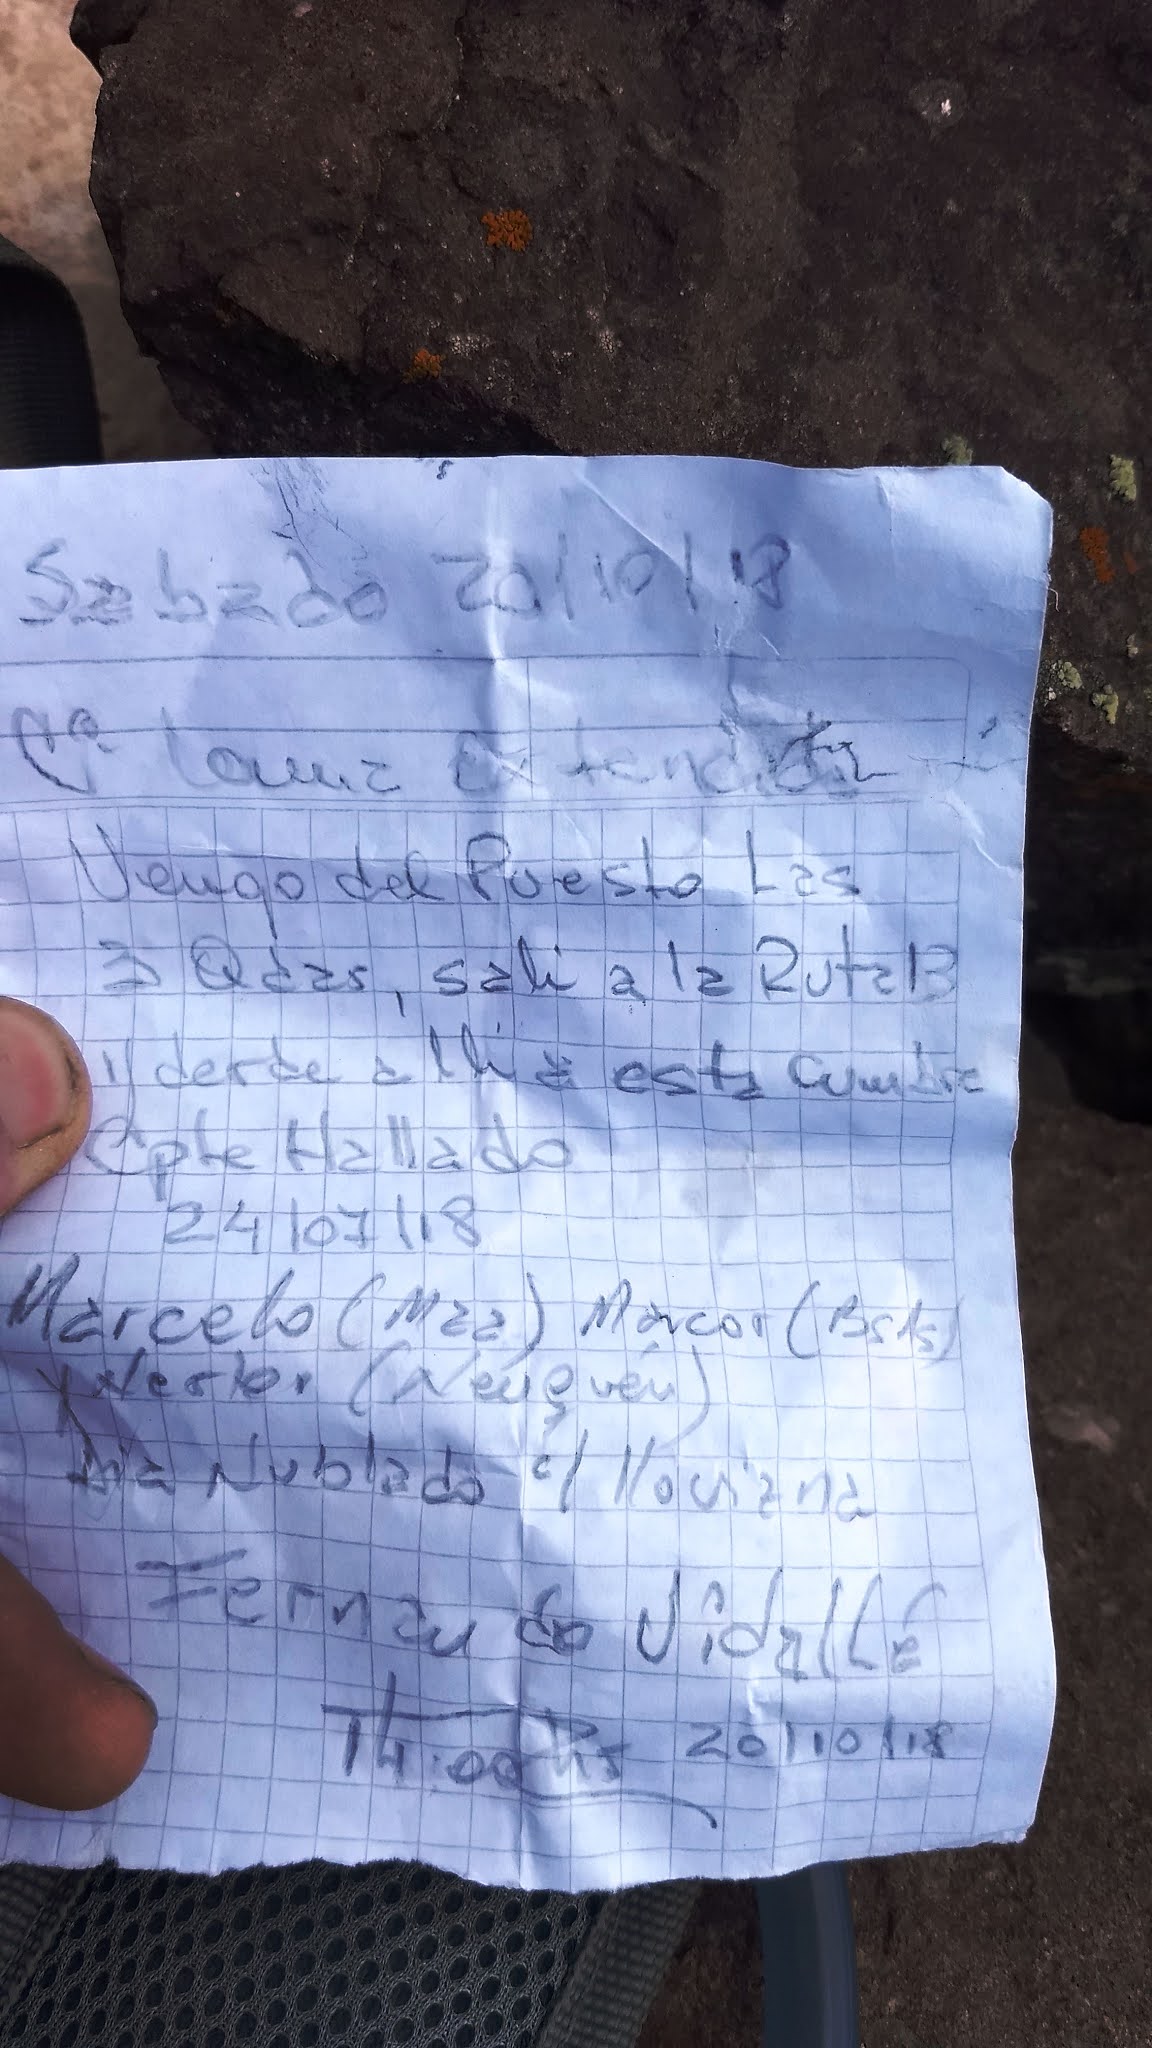 Sabado 20/10/18
Cº Loma Extendida
Vengo del Puesto Las
3 Qdas, sali a la Ruta 13
y desde alli a esta Cumbre
Cpte Hallado
24/07/18
Marcelo (Mza) Marcos (Bs As)
y Nestor (Neuquén)
Dia Nublado c/ llovizna
Fernando Vidalle
14:00 Hs 20/10/18